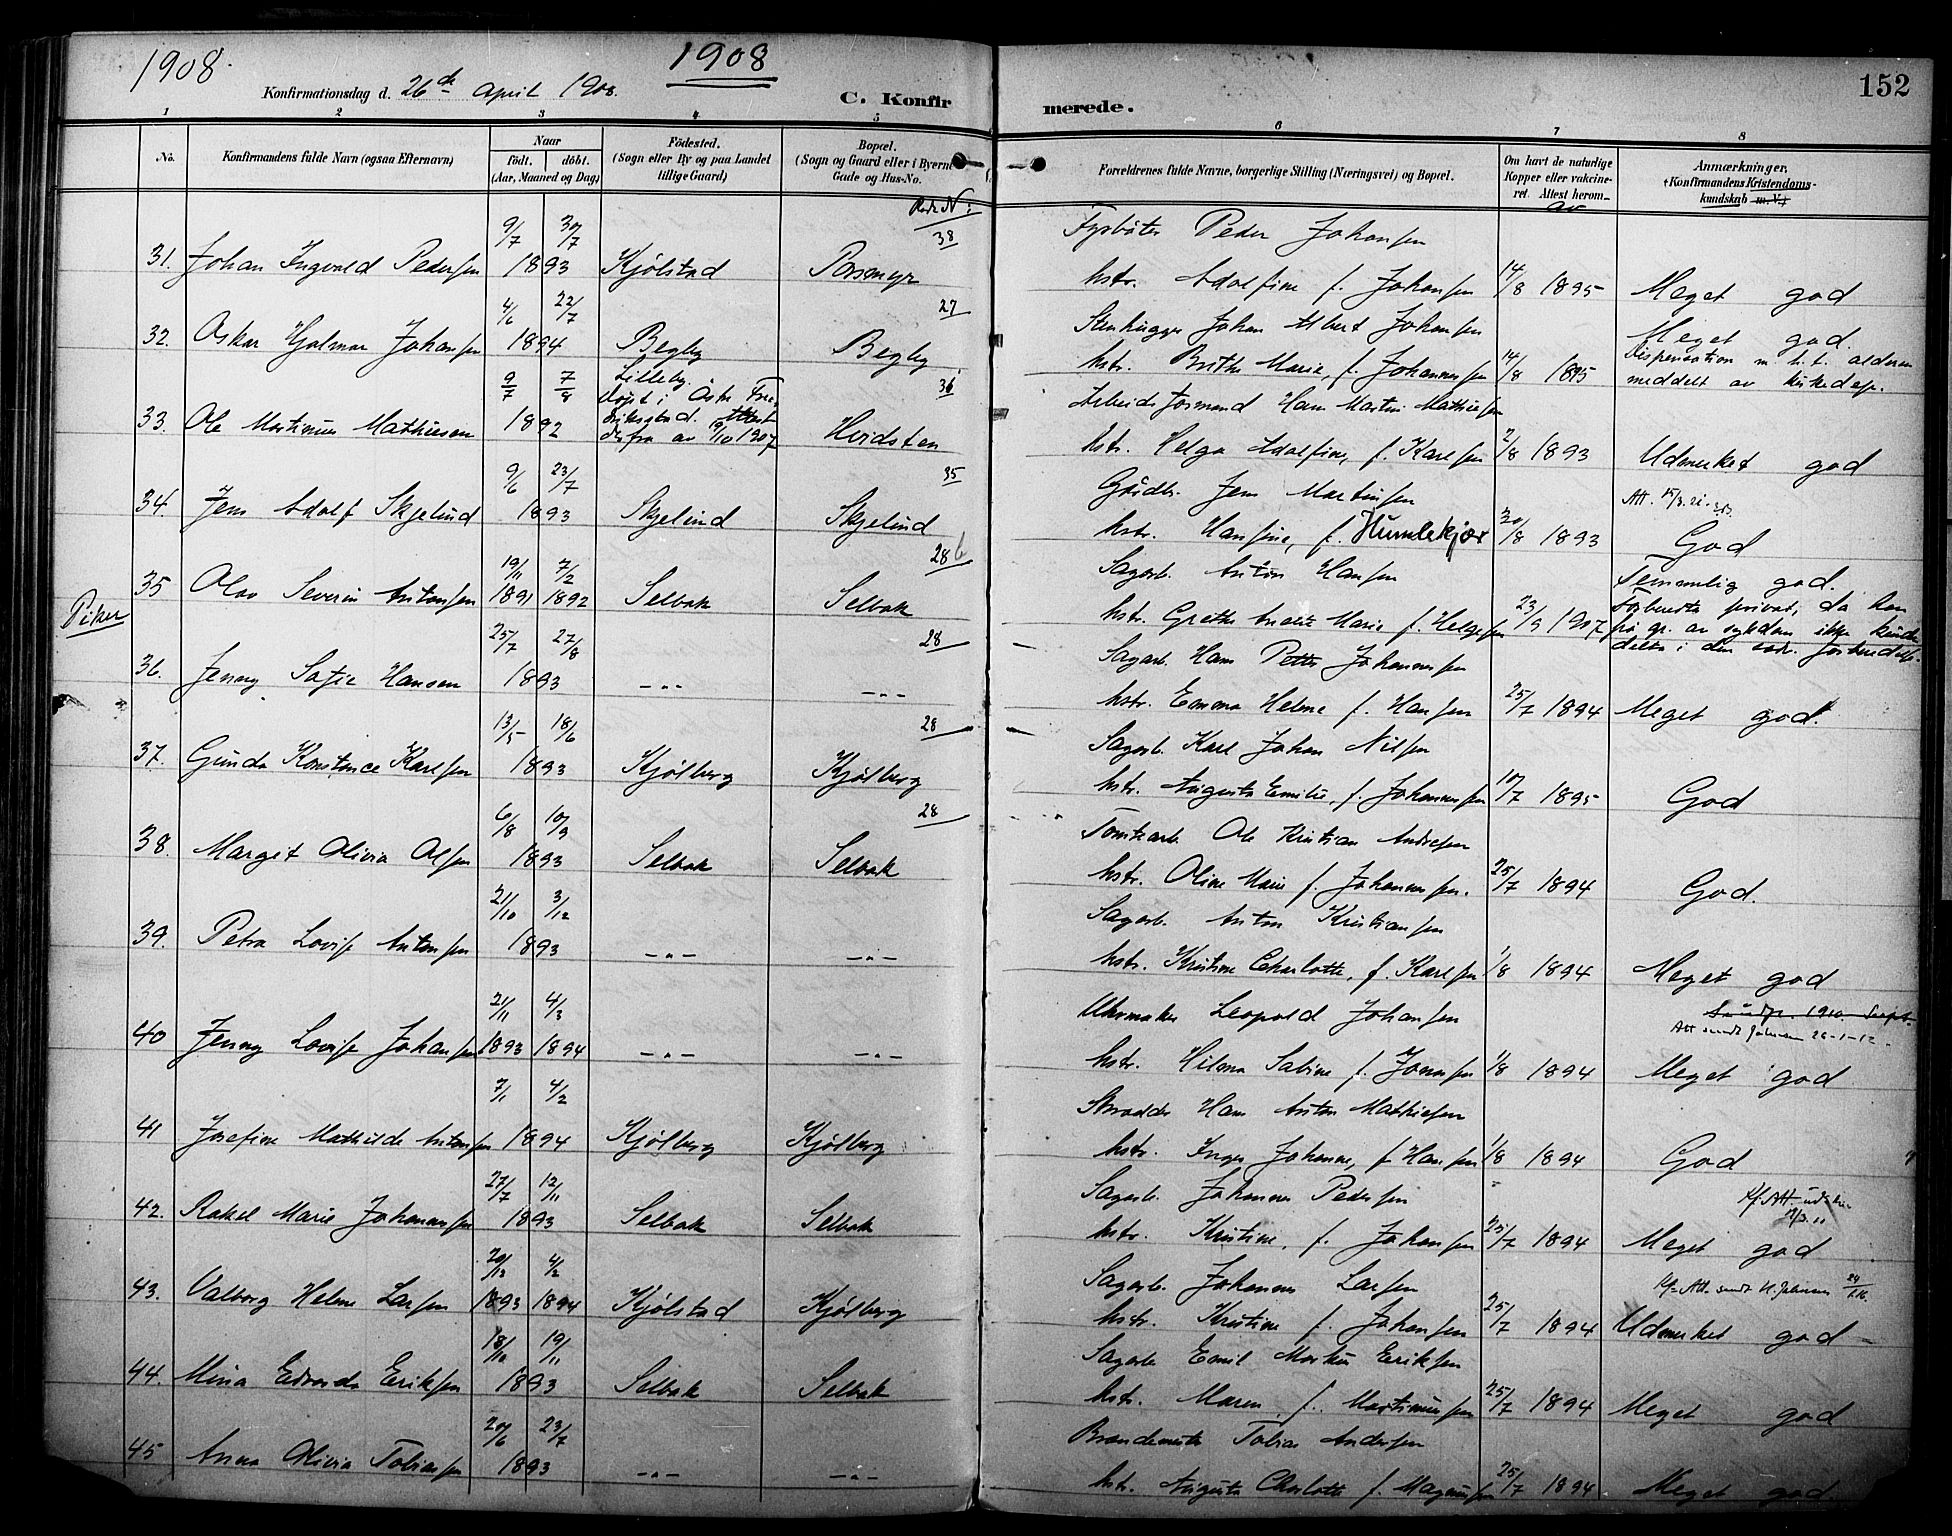 1908.
1908
152
Konfirmationsdag d. 26de april 1908.
C. Konfirmerede.
1 2 3 4 5 6 7 8
No.
Konfirmandens fulde Navn (ogsaa Efternavn)
Naar
födt. döbt.
(Aar, Maaned og Dag)
Födested.
(Sogn eller By og paa Landet tillige Gaard)
Bopæl.
(Sogn og Gaard eller i Byerne Gade og Hus-No.
Forældrenes fulde Navne, borgerlige Stilling (Næringsvei) og Bopæl.
Om havt de naturlige Kopper eller vakcineret. Attest herom av
Anmærkninger,
(Konfirmandens Kristendomskundskab m. V.)
9/7 30/7 38 Fyrböter Peder Johansen
31. Johan Ingvald Pedersen 1893 Kjölstad hstr. Adolfine f. Johansen 14/8 1895 Meget god
4/6 22/7 27 Stenhugger Johan Albert Johansen
32. Oskar Hjalmar Johansen 1894 Begby Begby hstr. Marie, f. Johannessen 14/8 1895 Meget god.
Dispensation m. h. t. alderen
meddelt av
9/7 7/8 Lilleby. Döpt i Östre 36 Arbeids formand Hans Martin Mathisen
33. Ole Martinius Mathiesen 1892 derfra av 19/10 1907 Hvidsten hstr. Helga Adolfine, f. Karlsen 2/8 1893 Udmerket god
9/6 23/7 35 Gårdbr. Jens Martinsen
34. Jens Adolf Skjelind 1893 Skjelind Skjelind hstr. Hansine, f. Humlekjær 30/8 1893 God
19/11 7/2 28 Sagarb. Anton Hansen
35 Olav Severin Antonsen 1891 1892 Selbak Selbak hstr. Grethe Marie f. Helgesen 23/9 1907 Temmelig god.
Forberedt privat, da han
på gr. av sykdom ikke kunde
Piker
25/7 27/8 28 Sagarb. Hans Petter Johannessen
36. Jenny Sofie Hansen 1893 -"- -"- hstr. Emma Helene f. Hansen 25/7 1894 Meget god.
13/5 18/6 28 Sagarb. Karl Johan Nilsen
37. Gunda Konstance Karlsen 1893 Kjölberg Kjölberg hstr. Augusta Emilie, f. Johannessen 10/7 1895 God
6/8 10/9 28 Tomtearb. Ole Kristian Andresen
38. Margit Olivia Olsen 1893 Selbak Selbak hstr. Oline Marie f. Johannessen. 25/7 1894 God.
21/10 3/12 Sagarb. Anton Kristiansen
39. Petra Lovise Antonsen 1893 -"- -"- hstr. Kristine Charlotte, f. Karlsen 1/8 1894 Meget god
21/11 4/3 Uhrmaker Leopold Johansen
Att sendt Johansen 26-1-12.
40 Jenny Lovise Johansen 1893 1894 -"- -"- hstr. Hilma Sabine f. Jonassen 1/8 1894 Meget god
7/1 4/2 Skredder Hans Anton Mathiesen
41 Josefine Mathilde Antonsen 1894 Kjölberg Kjölberg hstr. Inger Johanne, f. Hansen 1/8 1894 God
27/7 12/11 Sagarb. Johannes Pedersen
42. Rakel Marie Johannessen 1893 Selbak Selbak hstr. Kristine, f. Johansen 25/7 1894 Meget god
4/2 Sagarb. Johannes Larsen
43. Valborg Helene Larsen 1893 1894 Kjölstad Kjölberg hstr. Kristine f. Johansen 25/7 1894 Udmerket god
18/10 19/11 Sagarb. Emil Martin Eriksen
44. Mina Edvarda Eriksen 1893 Selbak Selbak hstr. Maren f. Martinussen 25/7 1894 Meget god
20/6 23/7 Brandmester Tobias Andersen
45 Anna Olivia Tobiassen 1893 -"- -"- hstr. Augusta Charlotte f. Magnussen 25/7 1894 Meget god